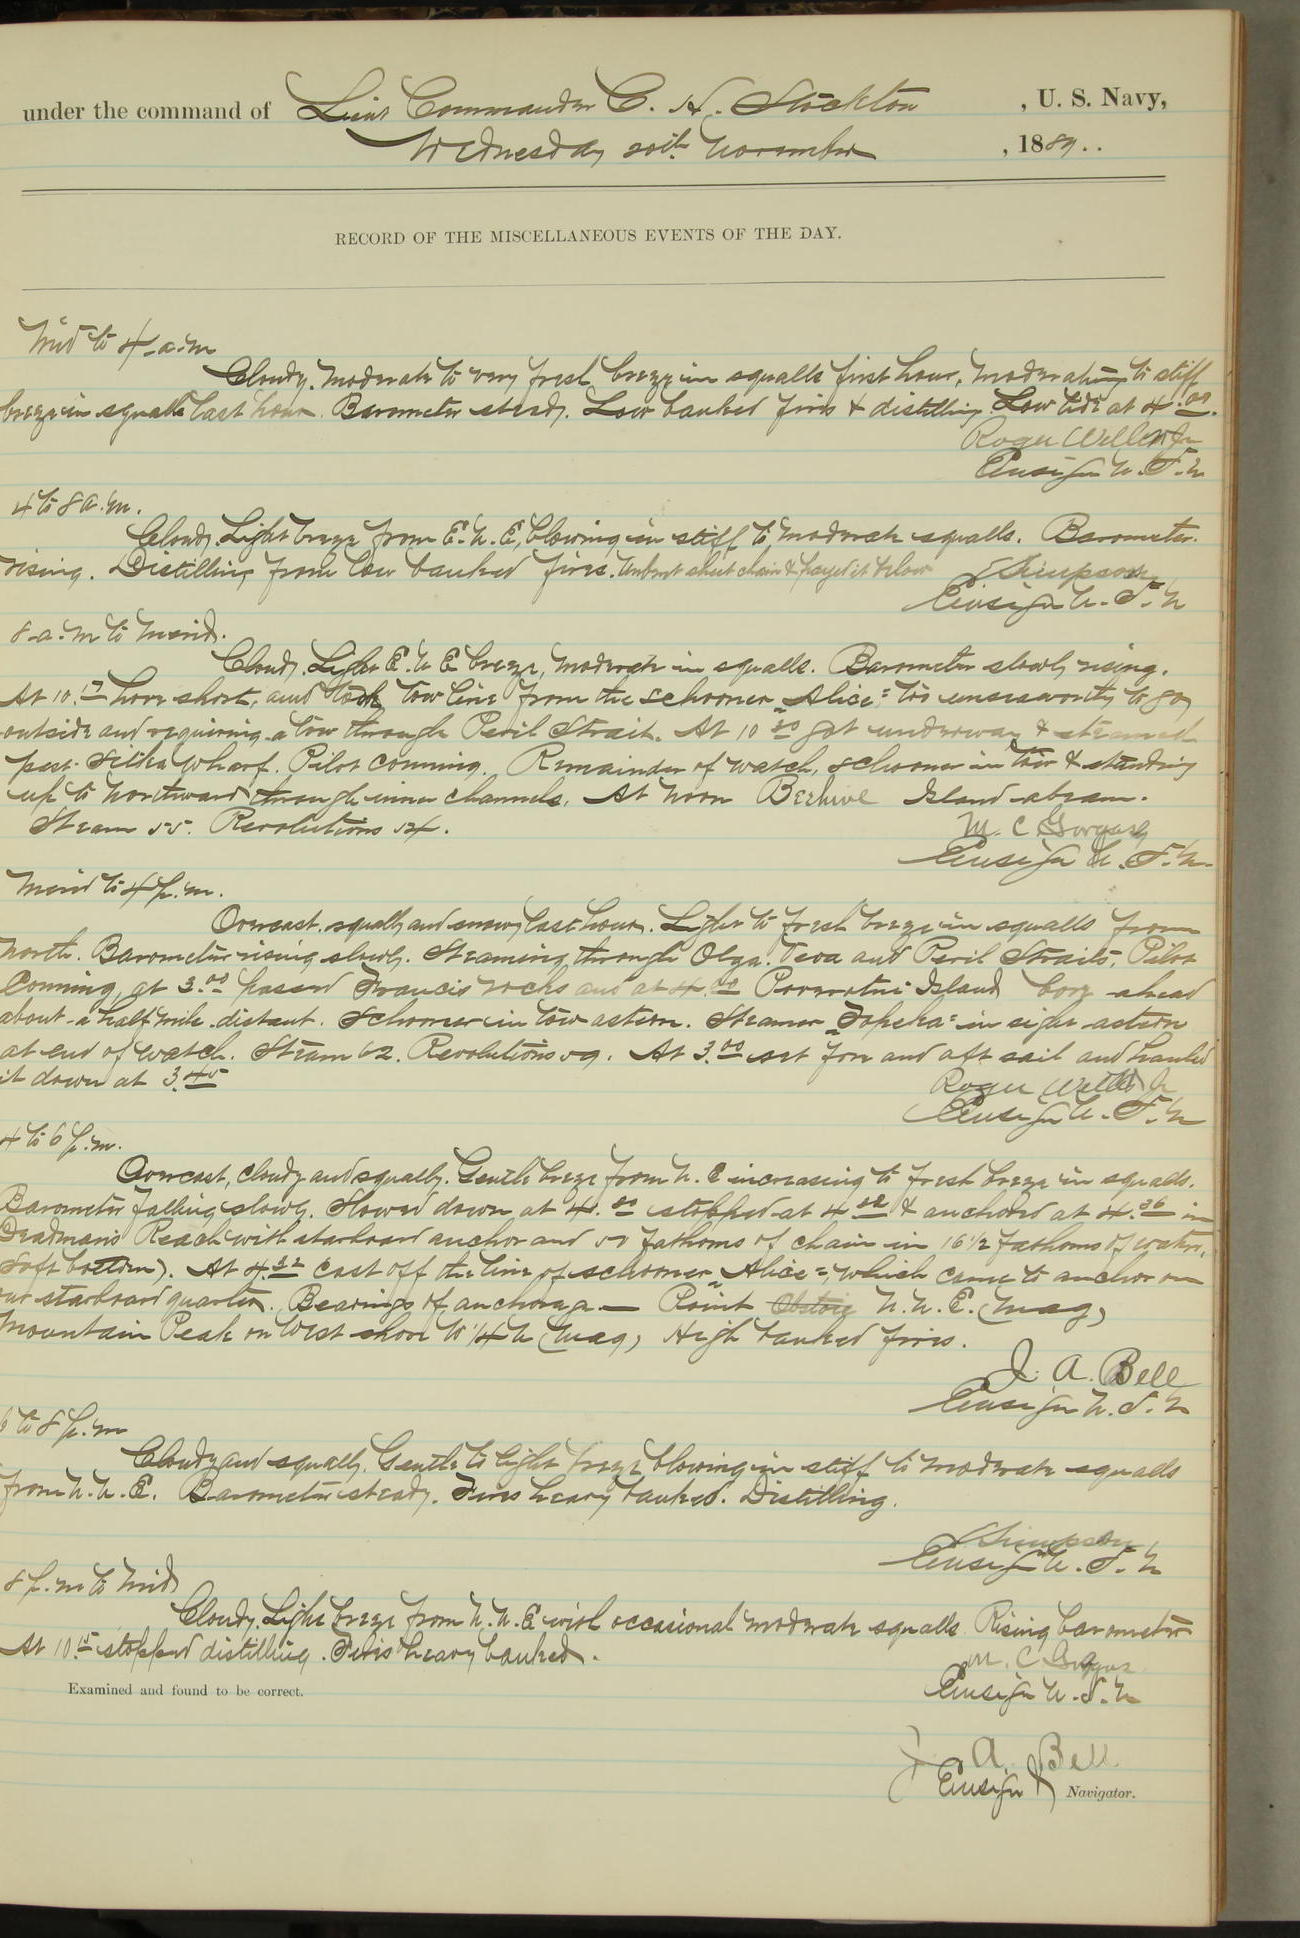 under the command of Lieut Commander C. H. Stockton, U. S. Navy,
Wednesday 20th November, 1889..
RECORD OF THE MISCELLANEOUS EVENTS OF THE DAY.
Mid to 4 a.m
Cloudy. Moderate to very fresh breeze in squalls first hour, moderating to stiff
breeze in squalls last hour. Barometer steady. Low banked fires & distilling. Low tide at 4.00.
Roger Welles Jr
Ensign U.S.N
4 to 8 a.m.
Cloudy. Light breeze from E.N.E, blowing in stiff to moderate squalls. Barometer
rising. Distilling from low banked fires. Unbent sheet chain & payed it below
Simpson
Ensign U.S.N
8 a.m to Merid.
Cloudy. Light E.N E breeze, moderate in squalls. Barometer slowly rising.
At 10. hove short, and took tow line from the schooner "Alice" too unseaworthy to go
outside and requiring a tow through Peril Strait. At 10 got underway & steamed
past Sitka wharf. Pilot conning. Remainder of watch, schooner in tow & standing
up to northward through inner channels. At noon Beehive Island abeam.
Steam 55. Revolutions 54.
M. C Gorgas
Ensign U.S.N.
Merid to 4 p.m.
Overcast, squally and snowy last hour. Light to fresh breeze in squalls from
North. Barometer rising slowly. Steaming through Olga, Neva and Peril Straits, Pilot
Conning, at 3.00 passed Francis rocks and at 4.00 Povorotni Island bore ahead
about a half mile distant. Schooner in tow astern. Steamer "Topeka" in sight astern
at end of watch. Steam 62. Revolutions 59. At 3.00 set fore and aft sail and hauled
it down at 3.45
Roger Welles Jr
Ensign U.S.N
4 to 6 p.m.
Overcast, cloudy and squally. Gentle breeze from N. E increasing to fresh breeze in squalls.
Barometer falling slowly. Slowed down at 4. stopped at 4 & anchored at 4.36 in
Deadmans Reach with starboard anchor and 50 fathoms of chain in 16 1/2 fathoms of water,
soft bottom). At 4.42 cast off the line of schooner "Alice", which came to anchor on
our starboard quarter. Bearings of anchorage — Point N.N.E. (mag)
Mountain Peak on West shore W 1/4 N (mag) High banked fires.
J. A. Bell
Ensign U.S.N
6 to 8 p.m
Cloudy and squally. Gentle to light breeze blowing in stiff to moderate squalls
from N.N.E. Barometer steady. Fires heavy banked. Distilling.
Simpson
Ensign U.S.N
8 p.m to Mid
Cloudy. Light breeze from N.N.E with occasional moderate squalls. Rising barometer
At 10.15 stopped distilling. Fires heavy banked.
M. C Gorgas
Ensign U.S.N
Examined and found to be correct.
J. A. Bell
Ensign Navigator.